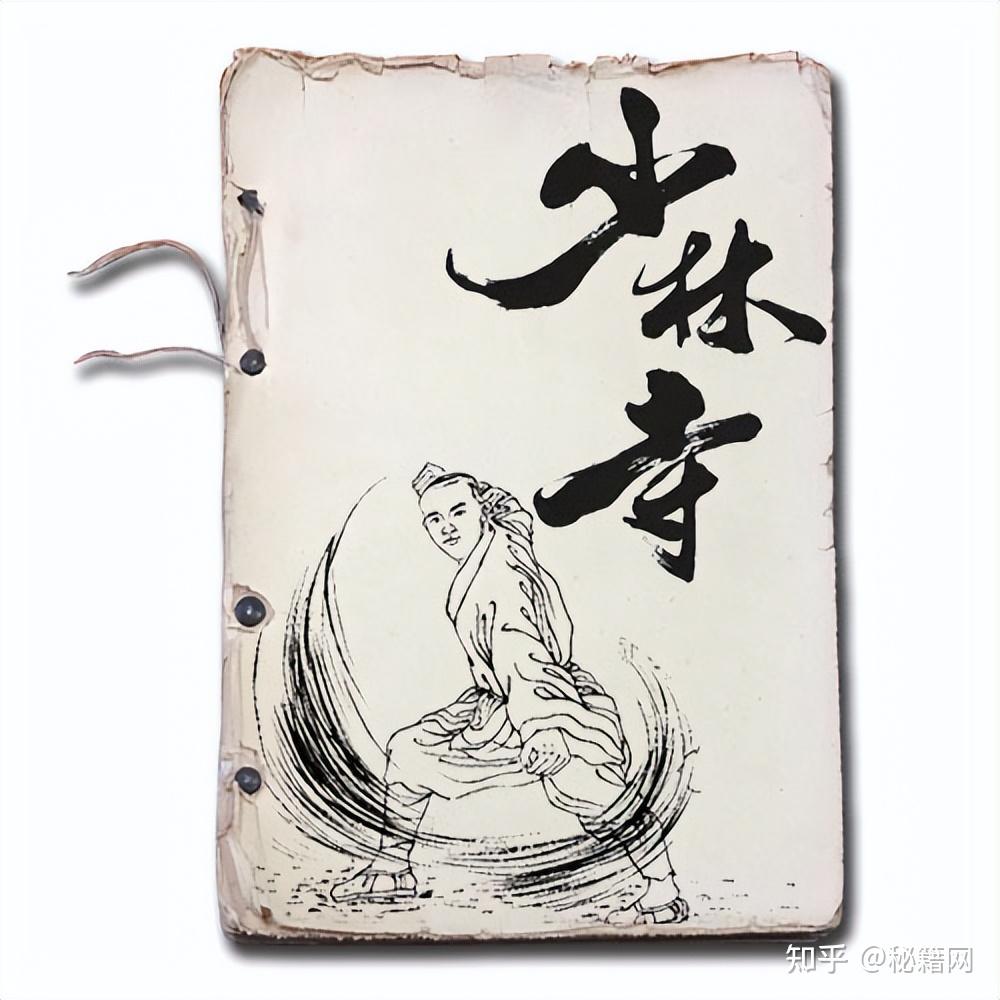 少林寺
知乎 @秘籍网